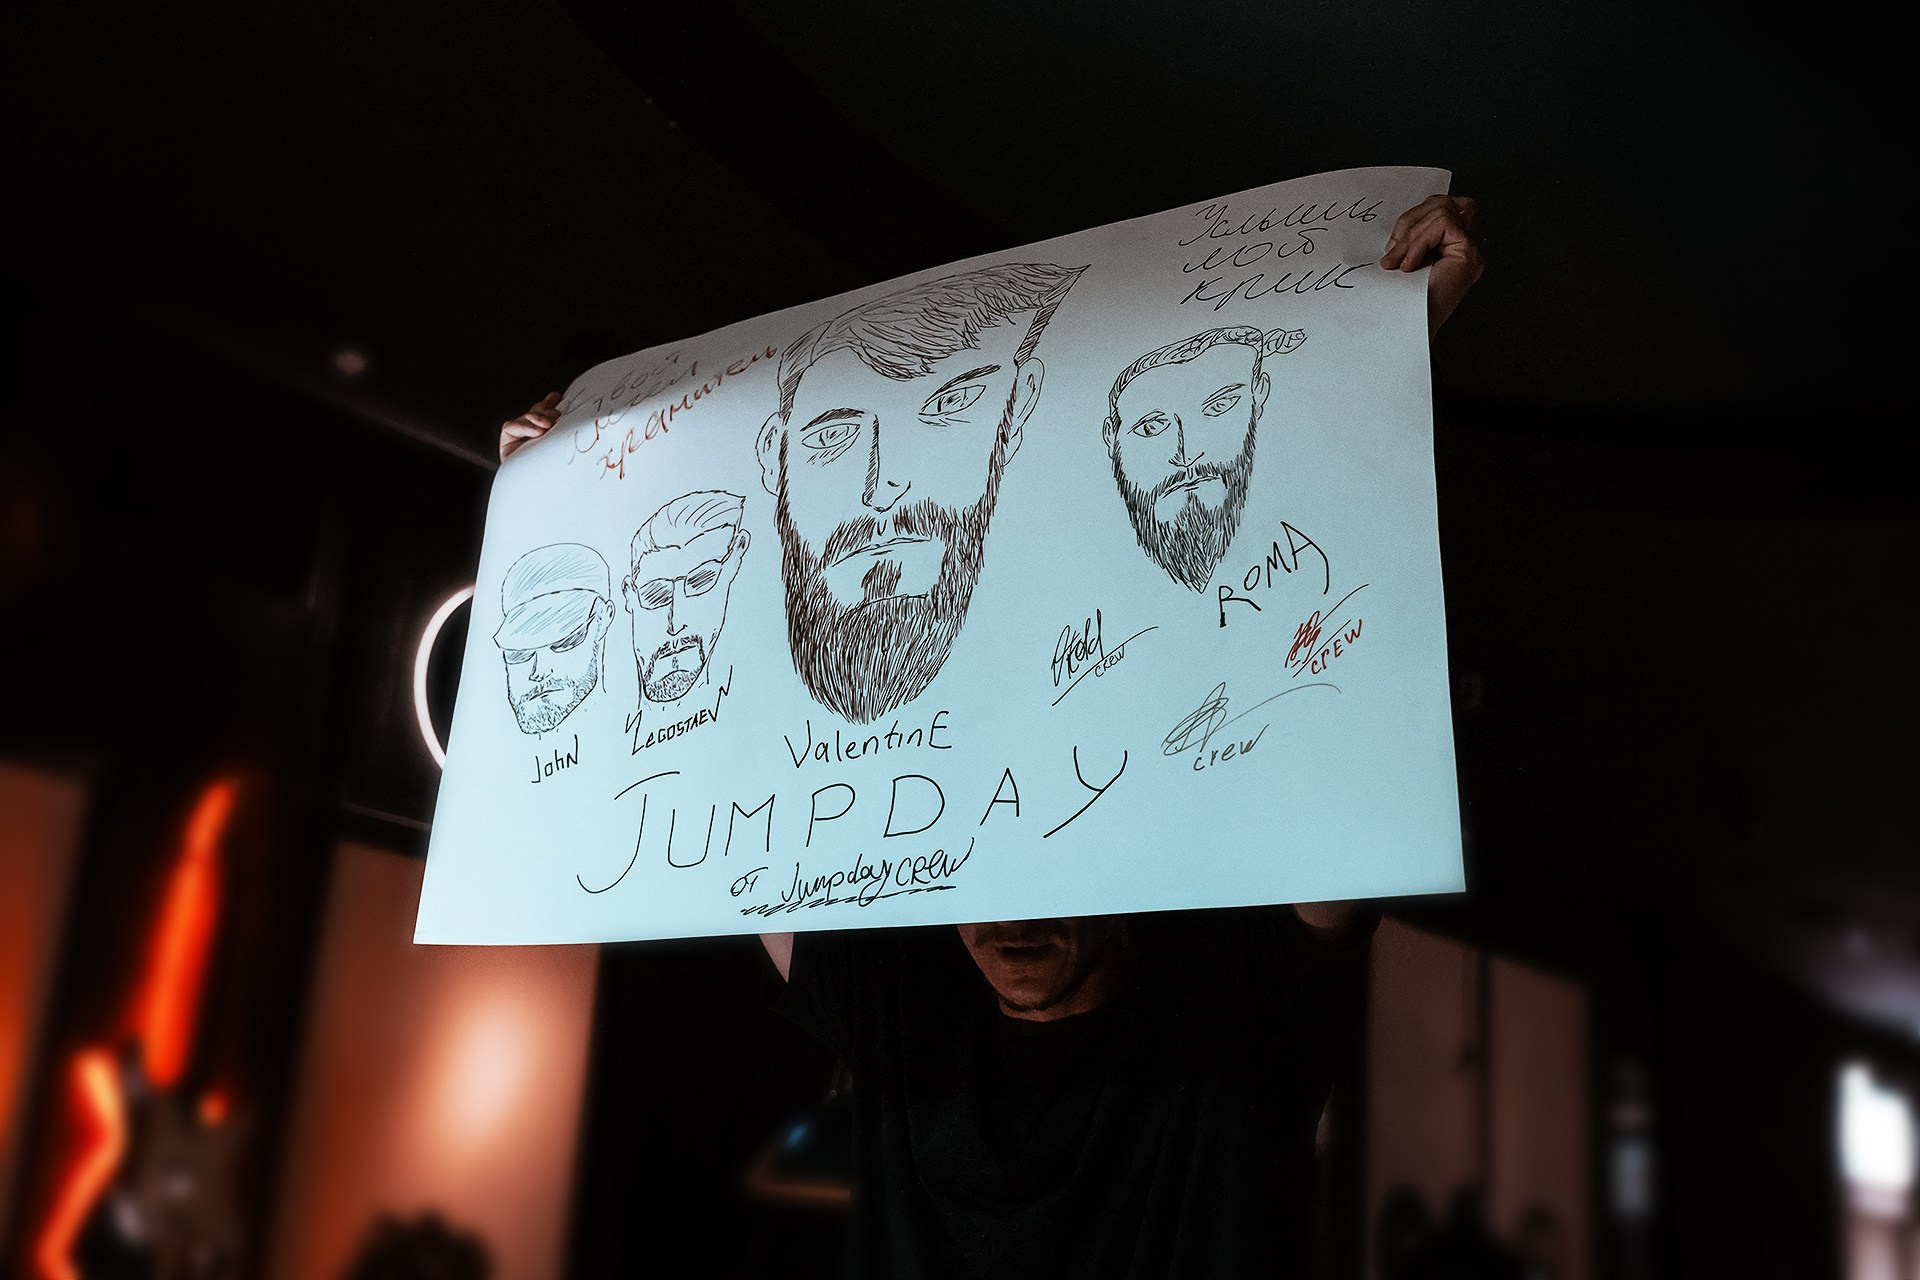 Твой
Ангел
хранитель
Услышь
мой
крик
John
LEGOSTAEV
ValentinE
ROMA
crew
CREW
crew
JUMPDAY
от JumpdayCREW